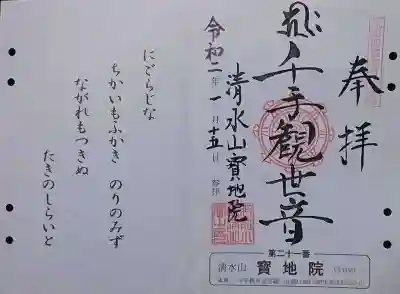 奉拝
千手觀世音
清水山寶地院
令和二年一月十五日
にごらじな
ちかいもふかき のりのみず
ながれもつきぬ
たきのしらいと
第二十一番
清水山 寶地院